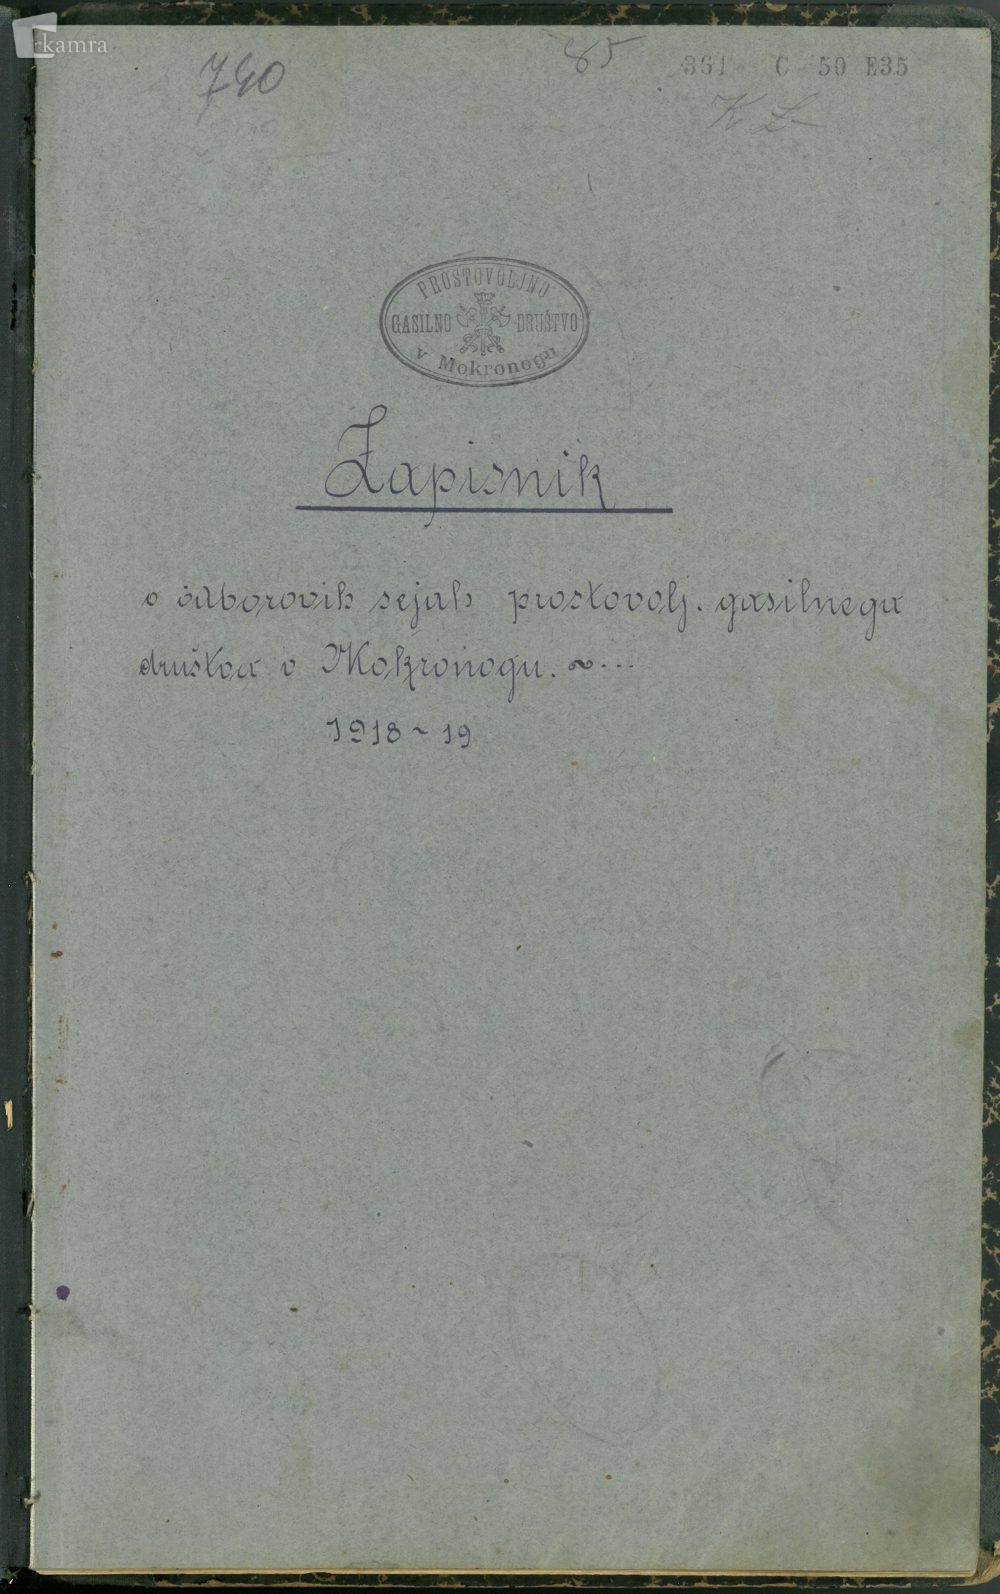 kamra
740
85
361 C 50 E35
PROSTOVOLJNO
GASILNO DRUŠTVO
v Mokronogu
Zapisnik
o odborovih sejah prostovolj. gasilnega
društva v Mokronogu. ~...
1918 ~ 19